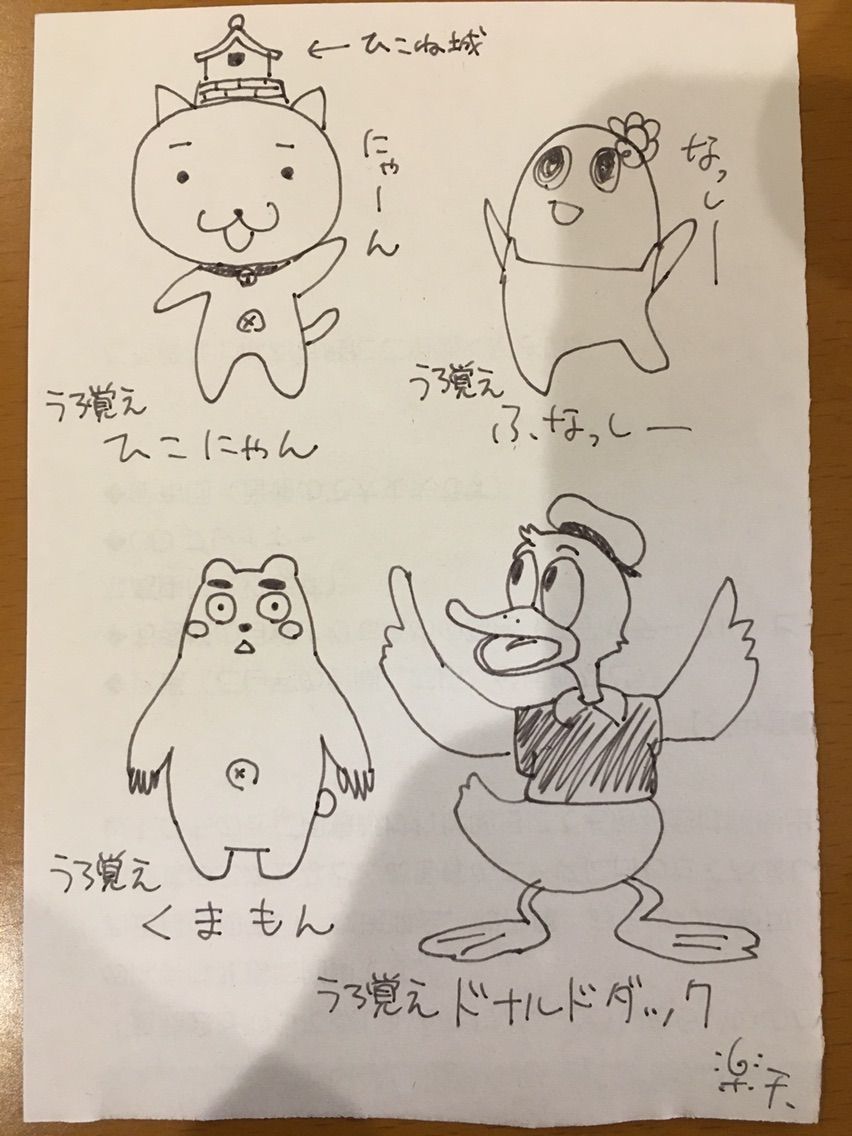 ←ひこね城
にゃーん
なっしー
うろ覚え
ひこにゃん
うろ覚え
ふなっしー
うろ覚え
くまもん
うろ覚え ドナルドダック